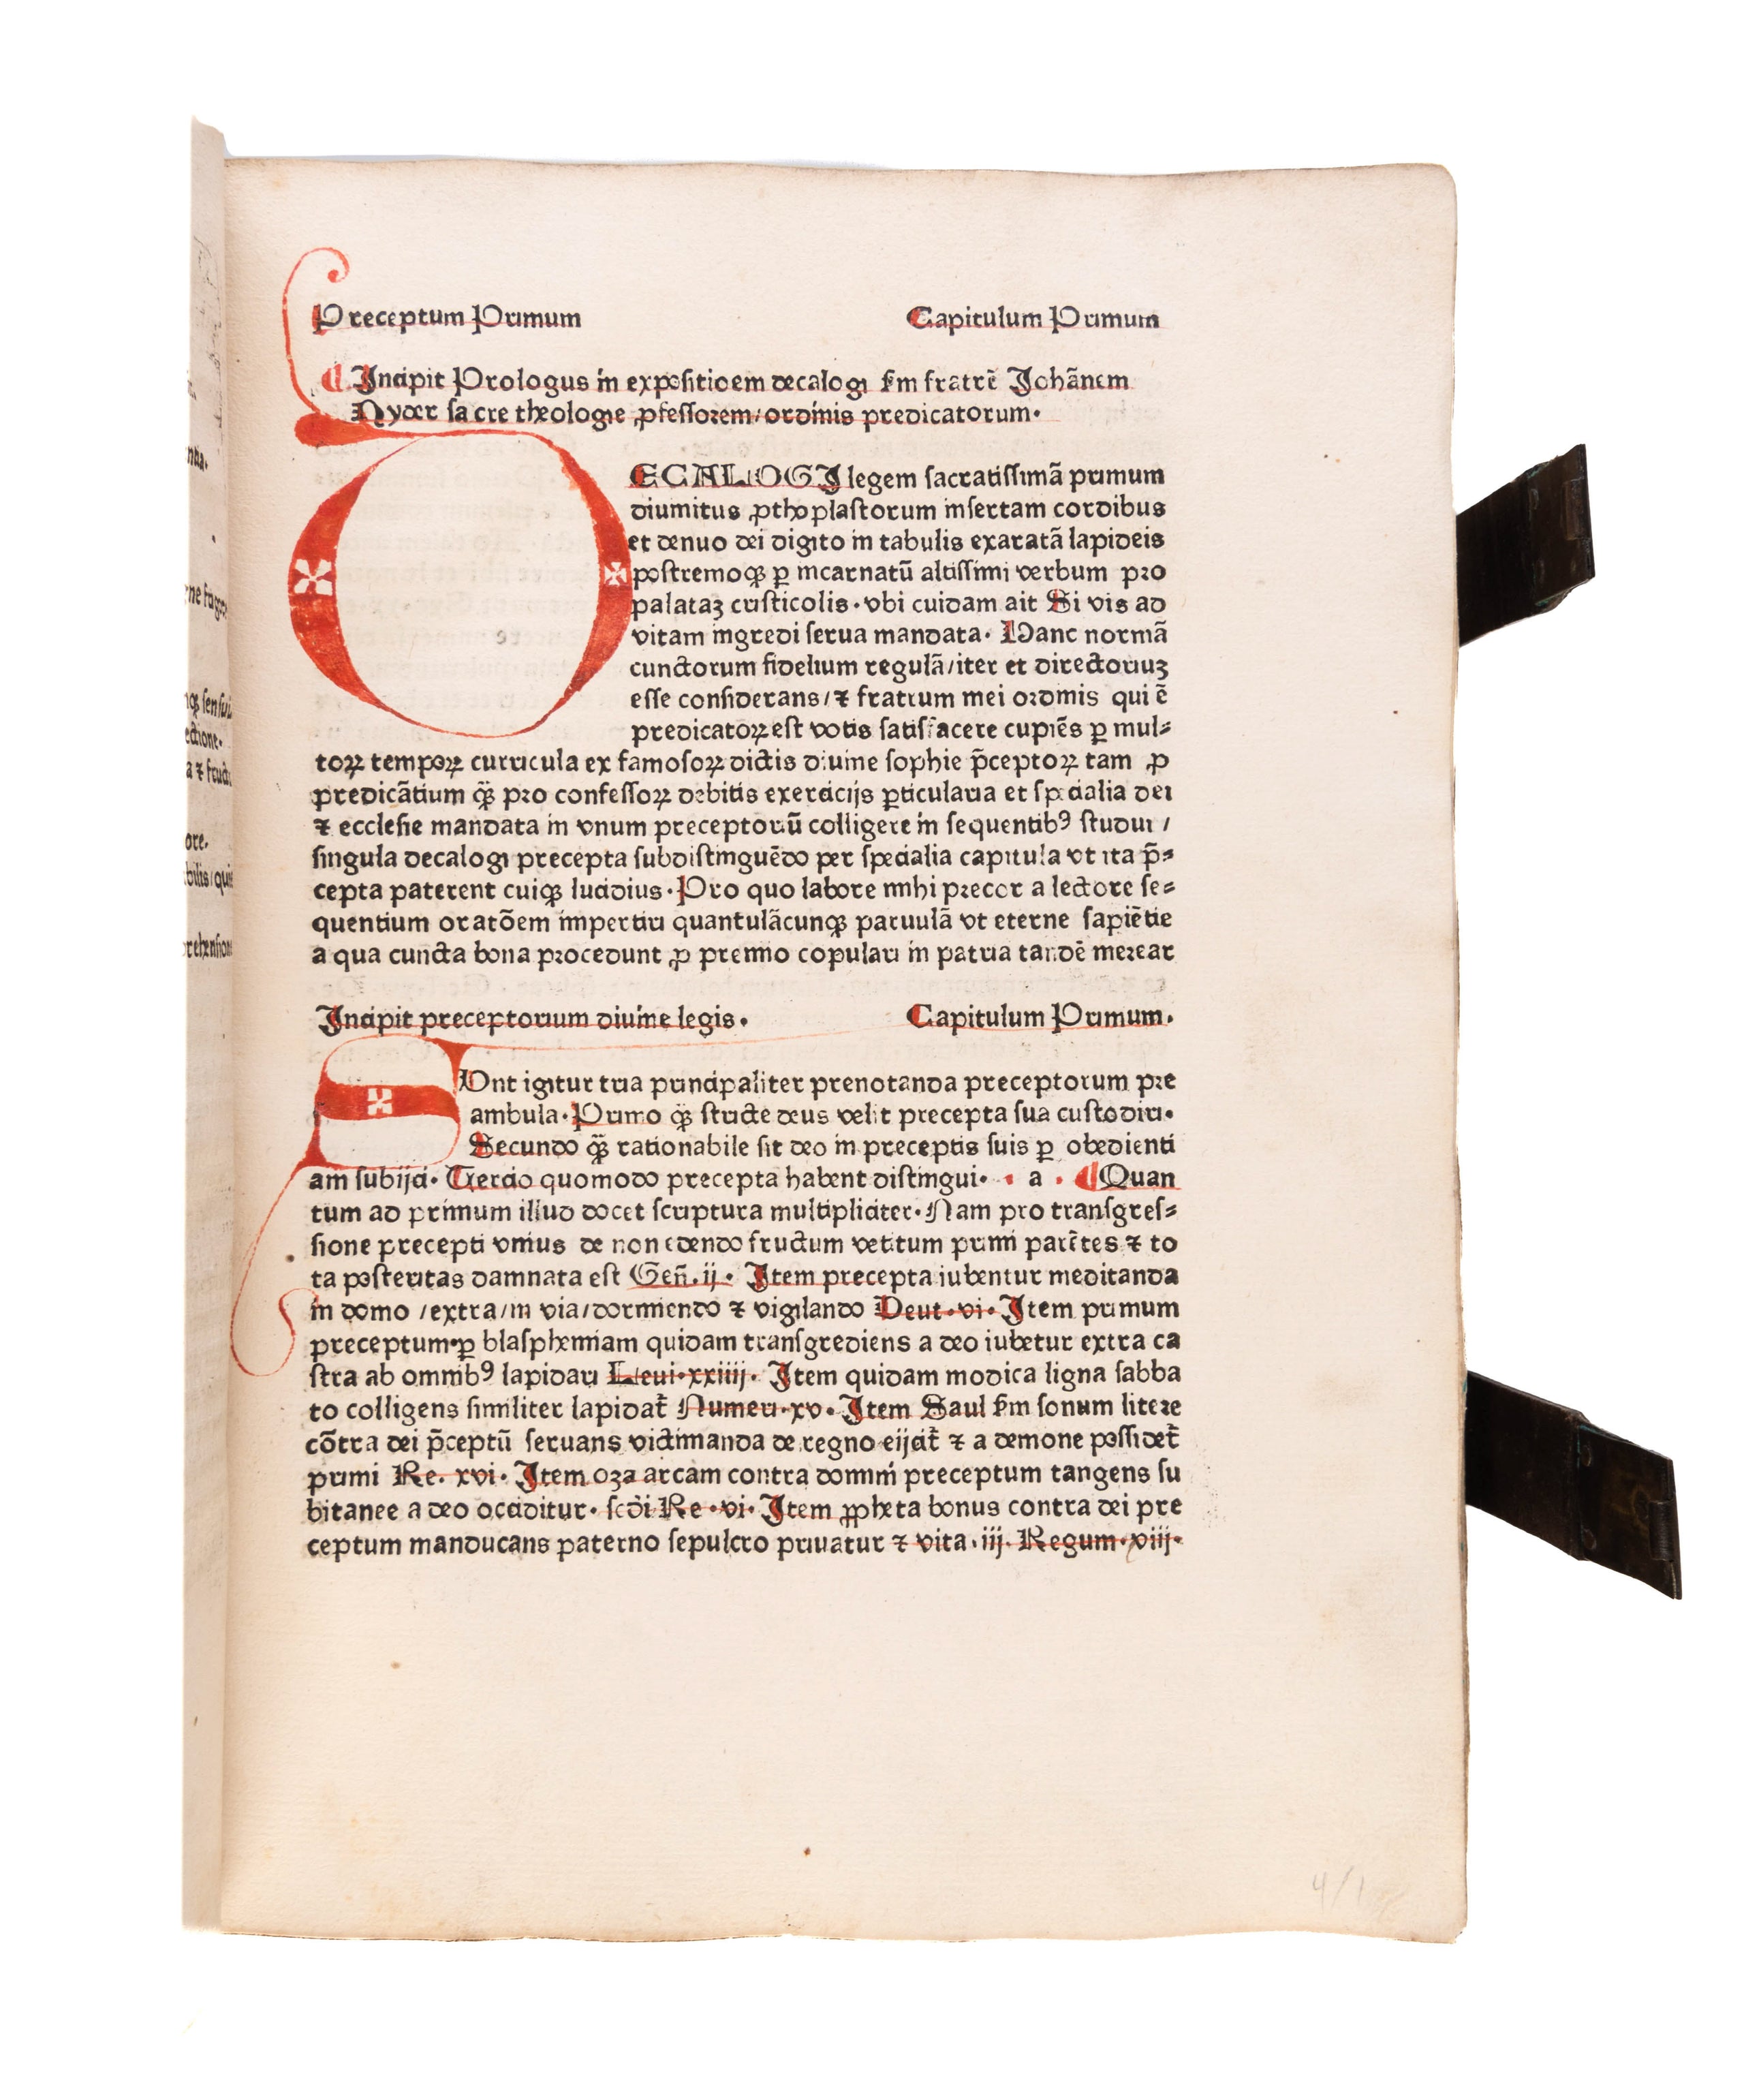 Preceptum Primum Capitulum Primum
⁋ Incipit Prologus in expositioem decalogi ẜm fratrē Johānem
Nyder sacre theologie ꝓfessorem/ordinis predicatorum·
DECALOGI legem sacratissimā primum
diuinitus ꝓthoplastorum insertam cordibus
et denuo dei digito in tabulis exaratā lapideis
postremoqꝫ ꝑ incarnatū altissimi verbum pro
palataꝫ cristicolis·vbi cuidam ait Si vis ad
vitam ingredi serua mandata· Hanc normā
cunctorum fidelium regulā/iter et directoriuꝫ
esse considerans/⁊ fratrum mei ordinis qui ē
predicatoꝝ est votis satisfacere cupiēs ꝑ mul⸗
toꝝ tempoꝝ curricula ex famosoꝝ dictis diuine sophie p̄ceptoꝝ tam ꝓ
predicātium qꝫ̄ pro confessoꝝ debitis exercicijs ꝑticularia et specialia dei
⁊ ecclesie mandata in vnum preceptoriū colligere in sequentibꝰ studui /
singula decalogi precepta subdistinguēdo per specialia capitula vt ita p̄⸗
cepta paterent cuiqꝫ lucidius·Pro quo labore mihi precor a lectore se⸗
quentium oratōem impertiri quantulācunqꝫ paruulā vt eterne sapiētie
a qua cuncta bona procedunt ꝓ premio copulari in patria tandē merear
Incipit preceptorium diuine legis· Capitulum Primum·
SOnt igitur tria principaliter prenotanda preceptorum pre
ambula·Primo qꝫ̄ stricte deus velit precepta sua custodiri·
Secundo qꝫ̄ rationabile sit deo in preceptis suis ꝑ obedienti
am subijci· Tercio quomodo precepta habent distingui· · a · ⁋Quan
tum ad primum illud docet scriptura multipliciter·Nam pro transgres⸗
sione precepti vnius de non edendo fructum vetitum primi parētes ⁊ to
ta posteritas damnata est Geñ.ij· Item precepta iubentur meditanda
in domo /extra/in via/dormiendo ⁊ vigilando Deut·vi· Item primum
preceptum·ꝑ blasphemiam quidam transgrediens a deo iubetur extra ca
stra ab omnibꝰ lapidari Leui·xxiiij· Item quidam modica ligna sabba
to colligens similiter lapidat̄ Numeri·xv· Item Saul ẜm sonum litere
cōtra dei p̄ceptū seruans victimanda de regno eijcit̄ ⁊ a demone possidet̄
primi Re. xvi· Item oza arcam contra domini preceptum tangens su
bitanee a deo occiditur· scd̄i Re·vi· Item ꝓpheta bonus contra dei pre
ceptum manducans paterno sepulcro priuatur ⁊ vita·iij· Regum·xiij·